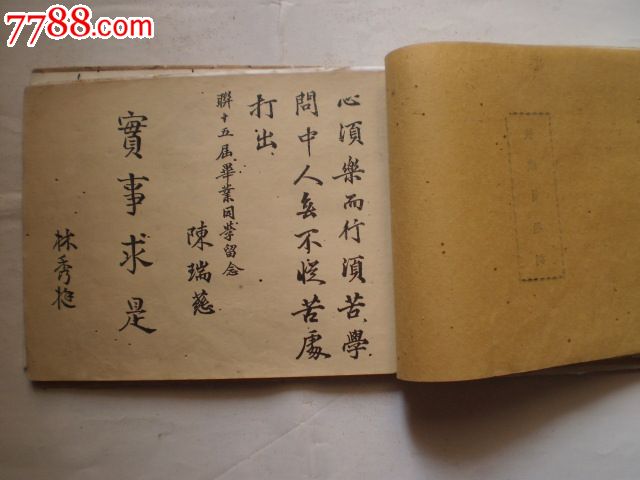 7788.com
心須樂而行須苦、學
問中人無不從苦處
打出、
聯十五屆畢業同學留念
陳瑞慈
實事求是
林秀挺